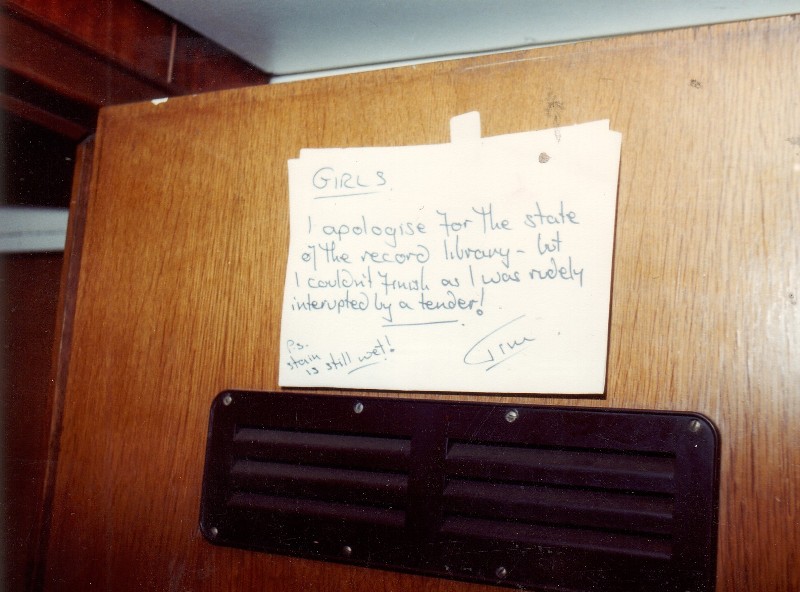 GIRLS.
I apologise for the state
of the record library - but
I couldn't finish as I was rudely
interupted by a tender!
P.S.
stain
is still wet!
Tim